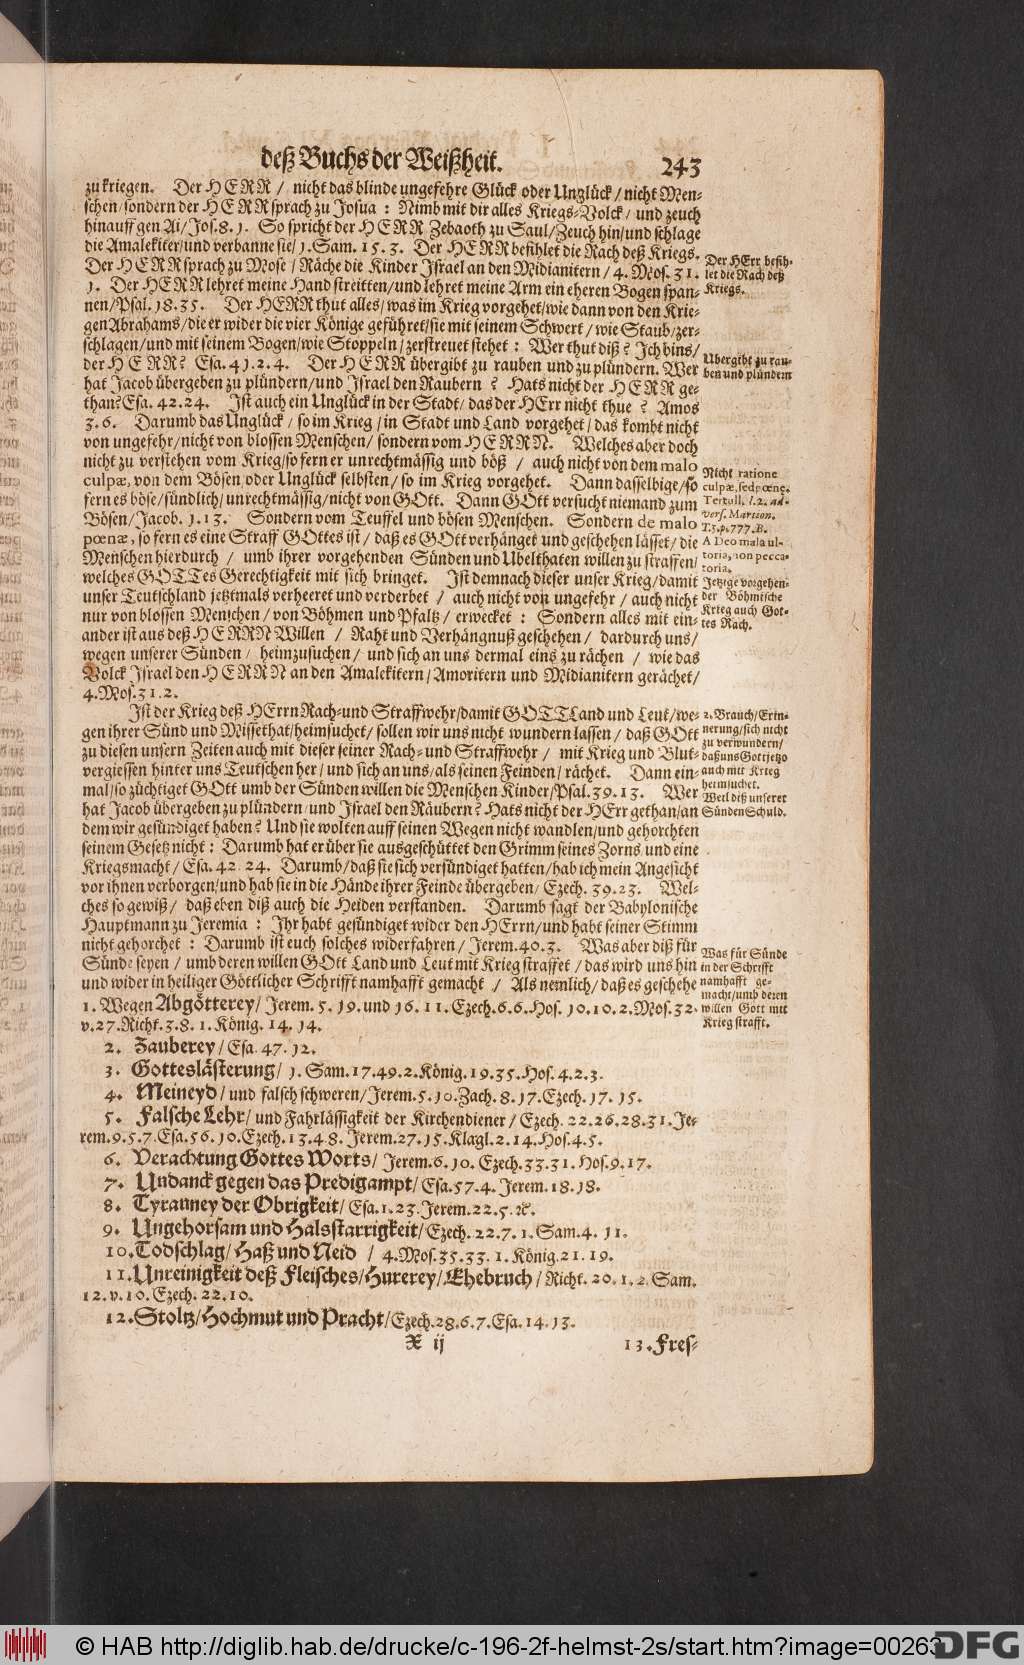 deß Buchs der Weißheit. 243
zu kriegen. Der HERR / nicht das blinde ungefehre Glück oder Unglück / nicht Men-
schen / sondern der HERR sprach zu Josua : Nimb mit dir alles Kriegs-Volck / und zeuch
hinauff gen Ai / Jos. 8. 1. So spricht der HERR Zebaoth zu Saul / Zeuch hin / und schlage
die Amalekiter / und verbanne sie / 1. Sam. 15. 3. Der HERR befihlet die Rach deß Kriegs.
Der HERR sprach zu Mose / Räche die Kinder Israel an den Midianitern / 4. Mos. 31.
1. Der HERR lehret meine Hand streitten / und lehret meine Arm ein eheren Bogen span-
nen / Psal. 18. 35. Der HERR thut alles / was im Krieg vorgehet / wie dann von den Krie-
gen Abrahams / die er wider die vier Könige geführet / sie mit seinem Schwert / wie Staub / zer-
schlagen / und mit seinem Bogen / wie Stoppeln / zerstreuet stehet : Wer thut diß ? Ich bins /
der HERR ? Esa. 41. 2. 4. Der HERR übergibt zu rauben und zu plündern. Wer
hat Jacob übergeben zu plündern / und Israel den Raubern ? Hats nicht der HERR ge-
than ? Esa. 42. 24. Ist auch ein Unglück in der Stadt / das der HErr nicht thue ? Amos
3. 6. Darumb das Unglück / so im Krieg / in Stadt und Land vorgehet / das kombt nicht
von ungefehr / nicht von blossen Menschen / sondern vom HERRN. Welches aber doch
nicht zu verstehen vom Krieg / so fern er unrechtmässig und böß / auch nicht von dem malo
culpæ, von dem Bösen oder Unglück selbsten / so im Krieg vorgehet. Dann dasselbige / so
fern es böse / sündlich / unrechtmässig / nicht von GOtt. Dann GOtt versucht niemand zum
Bösen / Jacob. 1. 13. Sondern vom Teuffel und bösen Menschen. Sondern de malo
pœnæ, so fern es eine Straff GOttes ist / daß es GOtt verhänget und geschehen lässet / die
Menschen hierdurch / umb ihrer vorgehenden Sünden und Ubelthaten willen zu straffen /
welches GOTTes Gerechtigkeit mit sich bringet. Ist demnach dieser unser Krieg / damit
unser Teutschland jetztmals verheeret und verderbet / auch nicht von ungefehr / auch nicht
nur von blossen Menschen / von Böhmen und Pfaltz / erwecket : Sondern alles mit ein-
ander ist aus deß HERRN Willen / Raht und Verhängnuß geschehen / dardurch uns /
wegen unserer Sünden / heimzusuchen / und sich an uns dermal eins zu rächen / wie das
Volck Israel den HERRN an den Amalekitern / Amoritern und Midianitern gerächet /
4. Mos. 31. 2.
Ist der Krieg deß HErrn Rach- und Straffwehr / damit GOTT Land und Leut / we-
gen ihrer Sünd und Missethat / heimsuchet / sollen wir uns nicht wundern lassen / daß GOtt
zu diesen unsern Zeiten auch mit dieser seiner Rach- und Straffwehr / mit Krieg und Blut-
vergiessen hinter uns Teutschen her / und sich an uns / als seinen Feinden / rächet. Dann ein-
mal / so züchtiget GOtt umb der Sünden willen die Menschen Kinder / Psal. 39. 13. Wer
hat Jacob übergeben zu plündern / und Israel den Räubern ? Hats nicht der HErr gethan / an
dem wir gesündiget haben ? Und sie wolten auff seinen Wegen nicht wandlen / und gehorchten
seinem Gesetz nicht : Darumb hat er über sie ausgeschüttet den Grimm seines Zorns und eine
Kriegsmacht / Esa. 42. 24. Darumb / daß sie sich versündiget hatten / hab ich mein Angesicht
vor ihnen verborgen / und hab sie in die Hände ihrer Feinde übergeben / Ezech. 39. 23. Wel-
ches so gewiß / daß eben diß auch die Heiden verstanden. Darumb sagt der Babylonische
Hauptmann zu Jeremia : Ihr habt gesündiget wider den HErrn / und habt seiner Stimm
nicht gehorchet : Darumb ist euch solches widerfahren / Jerem. 40. 3. Was aber diß für
Sünde seyen / umb deren willen GOtt Land und Leut mit Krieg straffet / das wird uns hin
und wider in heiliger Göttlicher Schrifft namhafft gemacht / Als nemlich / daß es geschehe
1. Wegen Abgötterey / Jerem. 5. 19. und 16. 11. Ezech. 6. 6. Hos. 10. 10. 2. Mos. 32.
v. 27. Richt. 3. 8. 1. König. 14. 14.
2. Zauberey / Esa. 47. 12.
3. Gotteslästerung / 1. Sam. 17. 49. 2. König. 19. 35. Hos. 4. 2. 3.
4. Meineyd / und falsch schweren / Jerem. 5. 10. Zach. 8. 17. Ezech. 17. 15.
5. Falsche Lehr / und Fahrlässigkeit der Kirchendiener / Ezech. 22. 26. 28. 31. Je-
rem. 9. 5. 7. Esa. 56. 10. Ezech. 13. 4. 8. Jerem. 27. 15. Klagl. 2. 14. Hos. 4. 5.
6. Verachtung Gottes Worts / Jerem. 6. 10. Ezech. 33. 31. Hos. 9. 17.
7. Undanck gegen das Predigampt / Esa. 57. 4. Jerem. 18. 18.
8. Tyranney der Obrigkeit / Esa. 1. 23. Jerem. 22. 5. ꝛc.
9. Ungehorsam und Halsstarrigkeit / Ezech. 22. 7. 1. Sam. 4. 11.
10. Todschlag / Haß und Neid / 4. Mos. 35. 33. 1. König. 21. 19.
11. Unreinigkeit deß Fleisches / Hurerey / Ehebruch / Richt. 20. 1. 2. Sam.
12. v. 10. Ezech. 22. 10.
12. Stoltz / Hochmut und Pracht / Ezech. 28. 6. 7. Esa. 14. 13.
X ij 13. Fres-
Der HErr befih-
let die Rach deß
Kriegs.
Ubergibt zu rau-
ben und plündern
Nicht ratione
culpæ, sed pœnæ.
Tertull. l. 2. ad-
vers. Marcion.
T. 3. p. 777. B.
A Deo mala ul-
toria, non pecca-
toria.
Jetzige vorgehen-
der Böhmische
Krieg auch Got-
tes Rach.
2. Brauch / Erin-
nerung / sich nicht
zu verwundern /
daß uns Gott jetzo
auch mit Krieg
heimsuchet.
Weil diß unserer
Sünden Schuld.
Was für Sünde
in der Schrifft
namhafft ge-
macht / umb deren
willen Gott mit
Krieg strafft.
© HAB http://diglib.hab.de/drucke/c-196-2f-helmst-2s/start.htm?image=00263
DFG